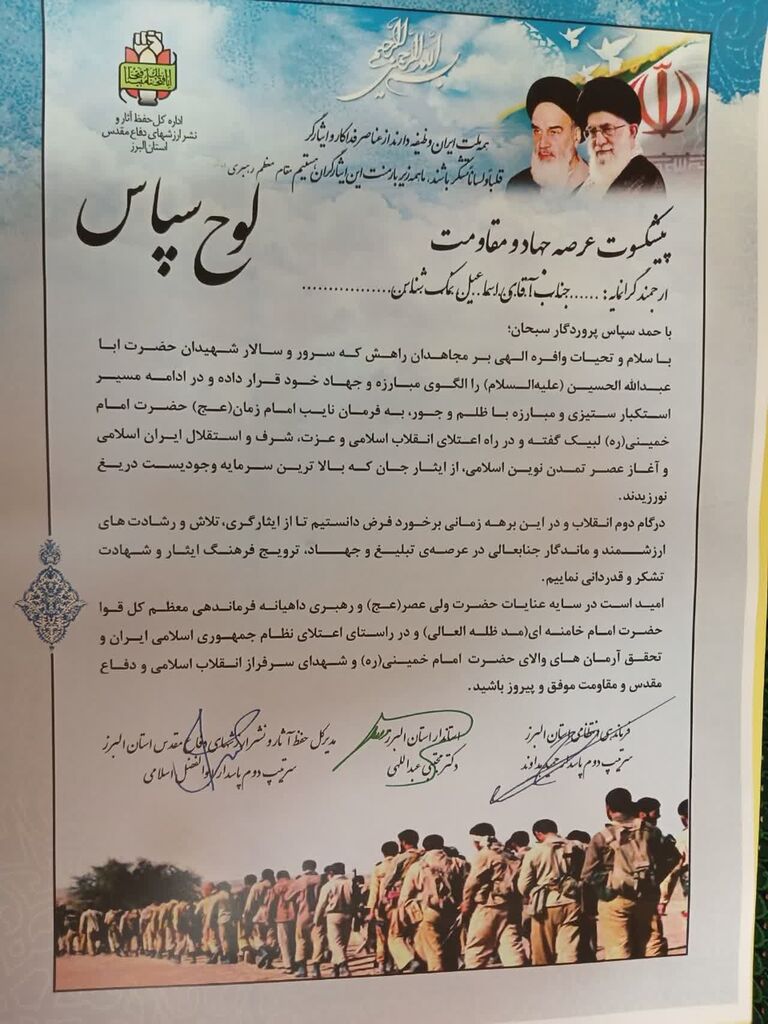 بسم الله الرحمن الرحیم
اداره کل حفظ آثار و
نشر ارزشهای دفاع مقدس
استان البرز
همه ملت ایران وظیفه دارند از عناصر فداکار و ایثارگر
قلباً و لساناً متشکر باشند، ما همه زیر بار منت این ایثارگران هستیم مقام معظم رهبری
لوح سپاس
پیشکسوت عرصه جهاد و مقاومت
ارجمند گرانمایه: ......جناب آقای اسماعیل نمک شناس................
با حمد سپاس پروردگار سبحان؛
با سلام و تحیات وافره الهی بر مجاهدان راهش که سرور و سالار شهیدان حضرت ابا
عبدالله الحسین (علیه‌السلام) را الگوی مبارزه و جهاد خود قرار داده و در ادامه مسیر
استکبار ستیزی و مبارزه با ظلم و جور، به فرمان نایب امام زمان(عج) حضرت امام
خمینی(ره) لبیک گفته و در راه اعتلای انقلاب اسلامی و عزت، شرف و استقلال ایران اسلامی
و آغاز عصر تمدن نوین اسلامی، از ایثار جان که بالا ترین سرمایه وجودیست دریغ
نورزیدند.
درگام دوم انقلاب و در این برهه زمانی برخورد فرض دانستیم تا از ایثارگری، تلاش و رشادت های
ارزشمند و ماندگار جنابعالی در عرصه‌ی تبلیغ و جهاد، ترویج فرهنگ ایثار و شهادت
تشکر و قدردانی نماییم.
امید است در سایه عنایات حضرت ولی عصر(عج) و رهبری داهیانه فرماندهی معظم کل قوا
حضرت امام خامنه ای(مد ظله العالی) و در راستای اعتلای نظام جمهوری اسلامی ایران و
تحقق آرمان های والای حضرت امام خمینی(ره) و شهدای سرفراز انقلاب اسلامی و دفاع
مقدس و مقاومت موفق و پیروز باشید.
فرماندهی انتظامی استان البرز
سرتیپ دوم پاسدار
استاندار استان البرز
دکتر مجتبی عبداللهی
مدیرکل حفظ آثار و نشر ارزشهای دفاع مقدس استان البرز
سرتیپ دوم پاسدار ابوالفضل اسلامی